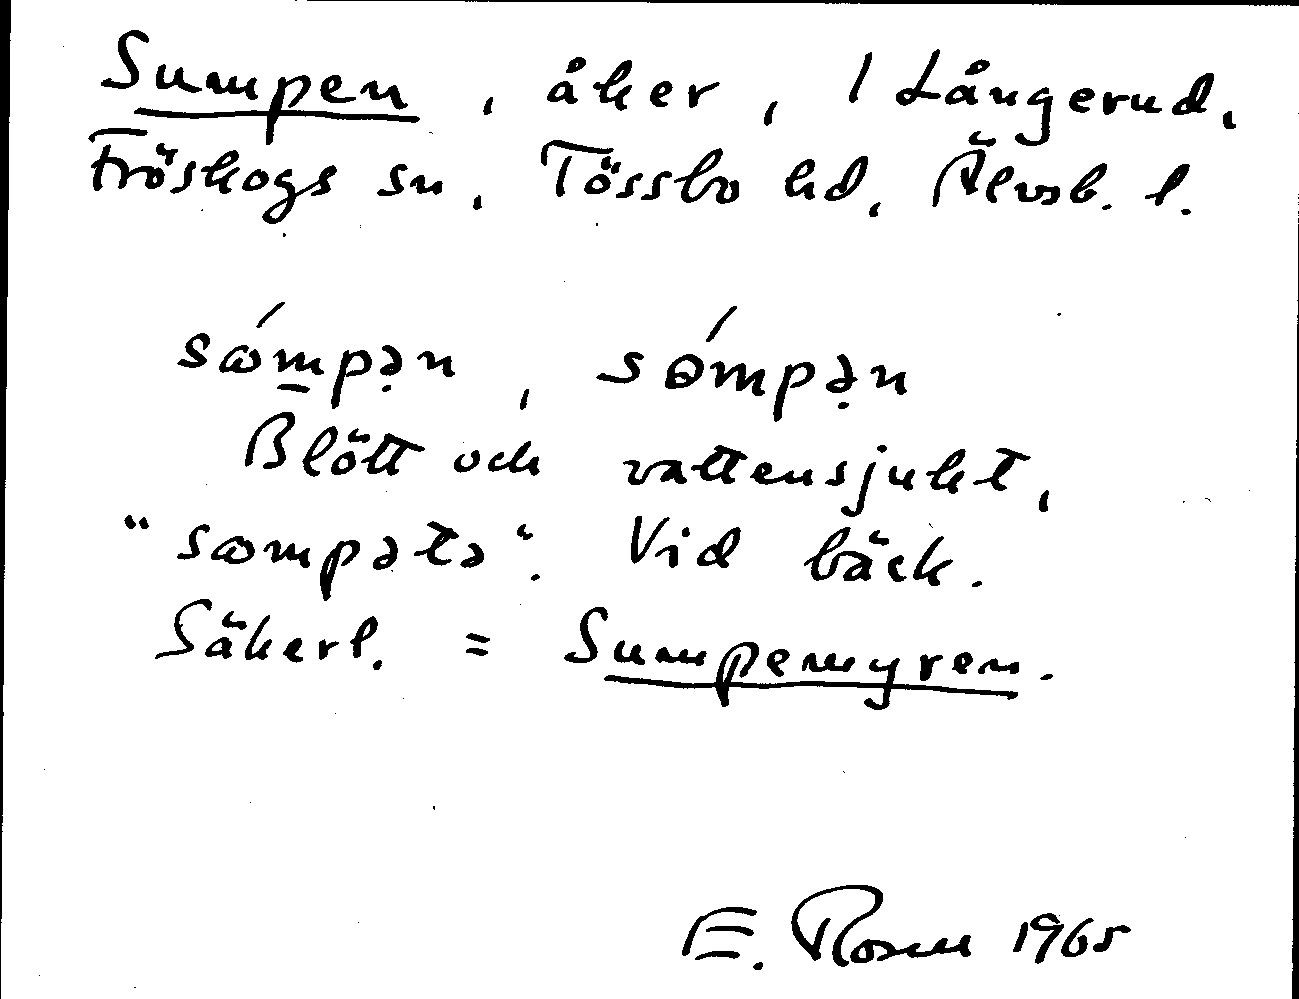 Sumpen, åker, 1 Långerud,
Fröskogs sn, Tössbo hd, Älvsb. l.
sómpə̣n, sómpə̣n
Blött och vattensjukt,
"sompətə". Vid bäck.
Säkerl. = Sumpemyren.
E. Rosen 1965